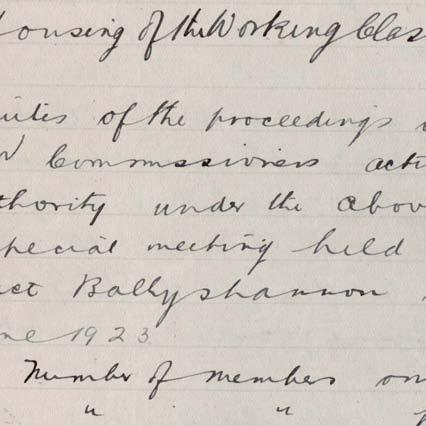 Housing of the Working Clas
utes of the proceedings
Commissioners acti
thority under the abov
special meeting held
Ballyshannon
ne 1923
Number of members on
" "